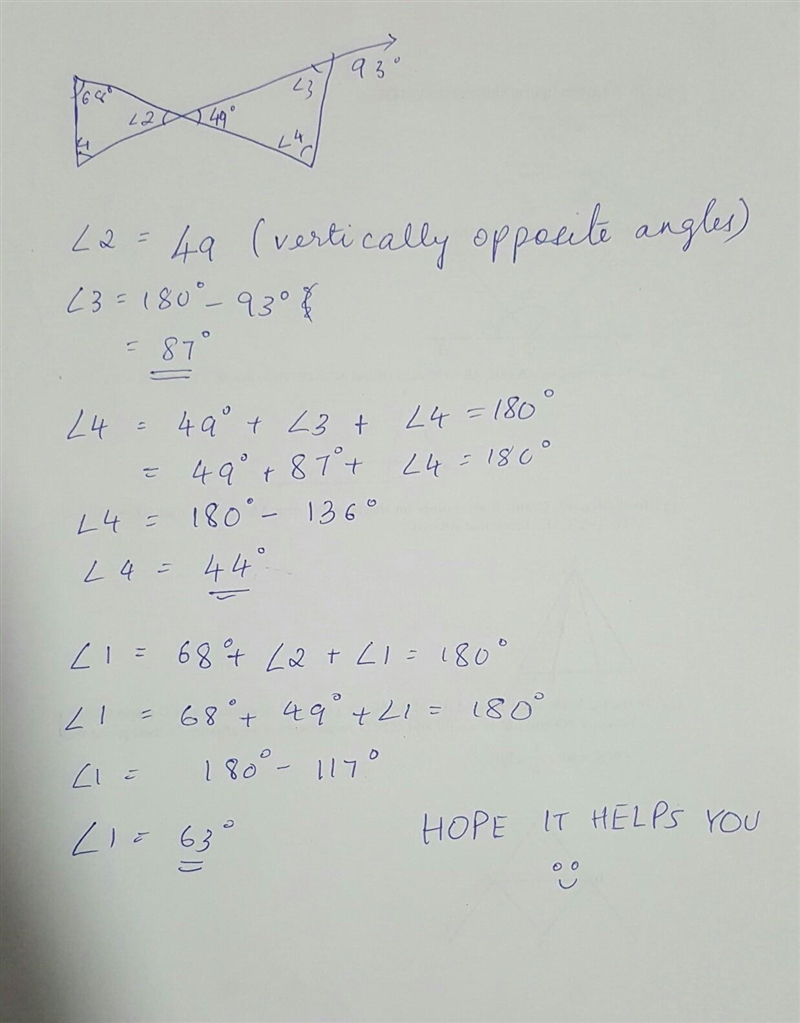 93°
∠3
68°
∠2
49°
∠4
∠2 = 49 (vertically opposite angles)
∠3 = 180° - 93°
= 87°
∠4 = 49° + ∠3 + ∠4 = 180°
= 49° + 87° + ∠4 = 180°
∠4 = 180° - 136°
∠4 = 44°
∠1 = 68° + ∠2 + ∠1 = 180°
∠1 = 68° + 49° + ∠1 = 180°
∠1 = 180° - 117°
∠1 = 63°
HOPE IT HELPS YOU